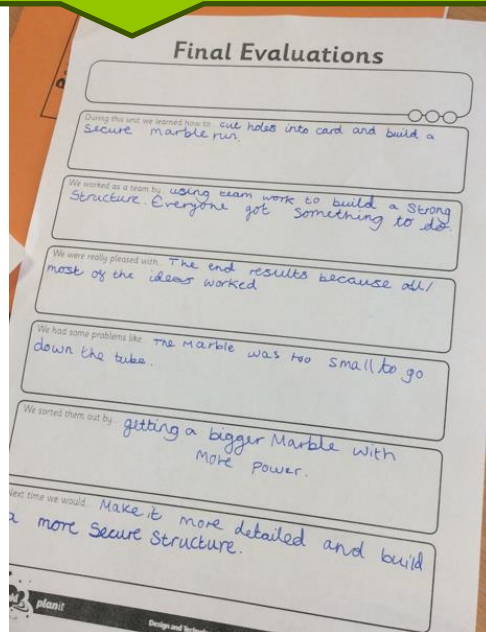 Final Evaluations
During this unit we learned how to... cut holes into card and build a
secure marble run.
We worked as a team by... using team work to build a strong
structure. Everyone got something to do.
We were really pleased with... The end results because all/
most of the ideas worked
We had some problems like... The Marble was too small to go
down the tube.
We sorted them out by... getting a bigger Marble with
More power.
Next time we would... Make it more detailed and build
a more Secure Structure.
planit
Design and Technology